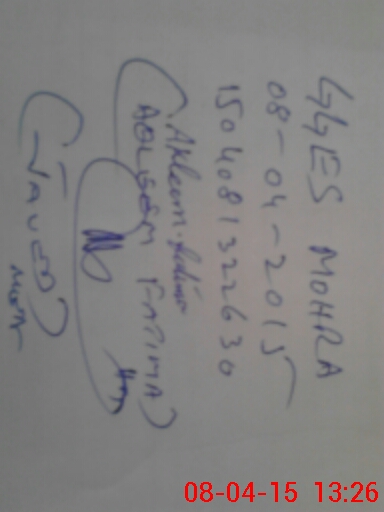 GGES MOHRA
08-04-2015
1504081322630
Akleem fatima
(AQLEEM FATIMA)
(JAVED)
08-04-15 13:26